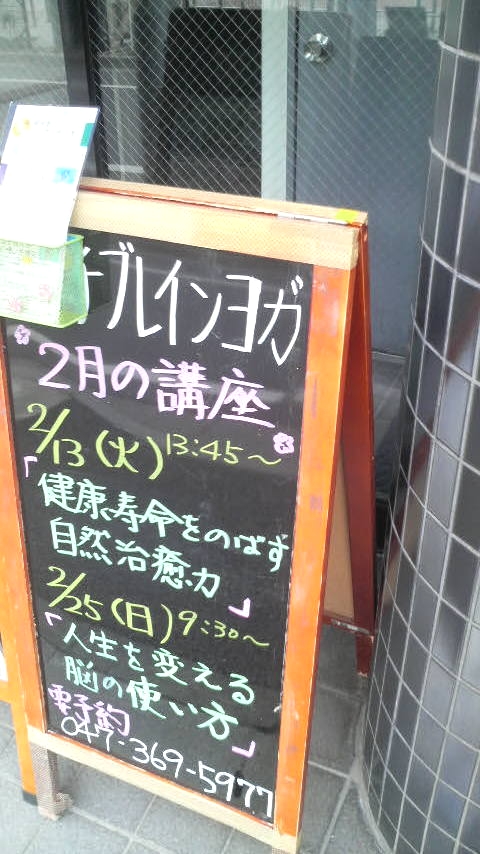 ブレインヨガ
2月の講座
2/13(火)13:45〜
「健康寿命をのばす
自然治癒力」
2/25(日)9:30〜
「人生を変える
脳の使い方」
要予約
047-369-5977